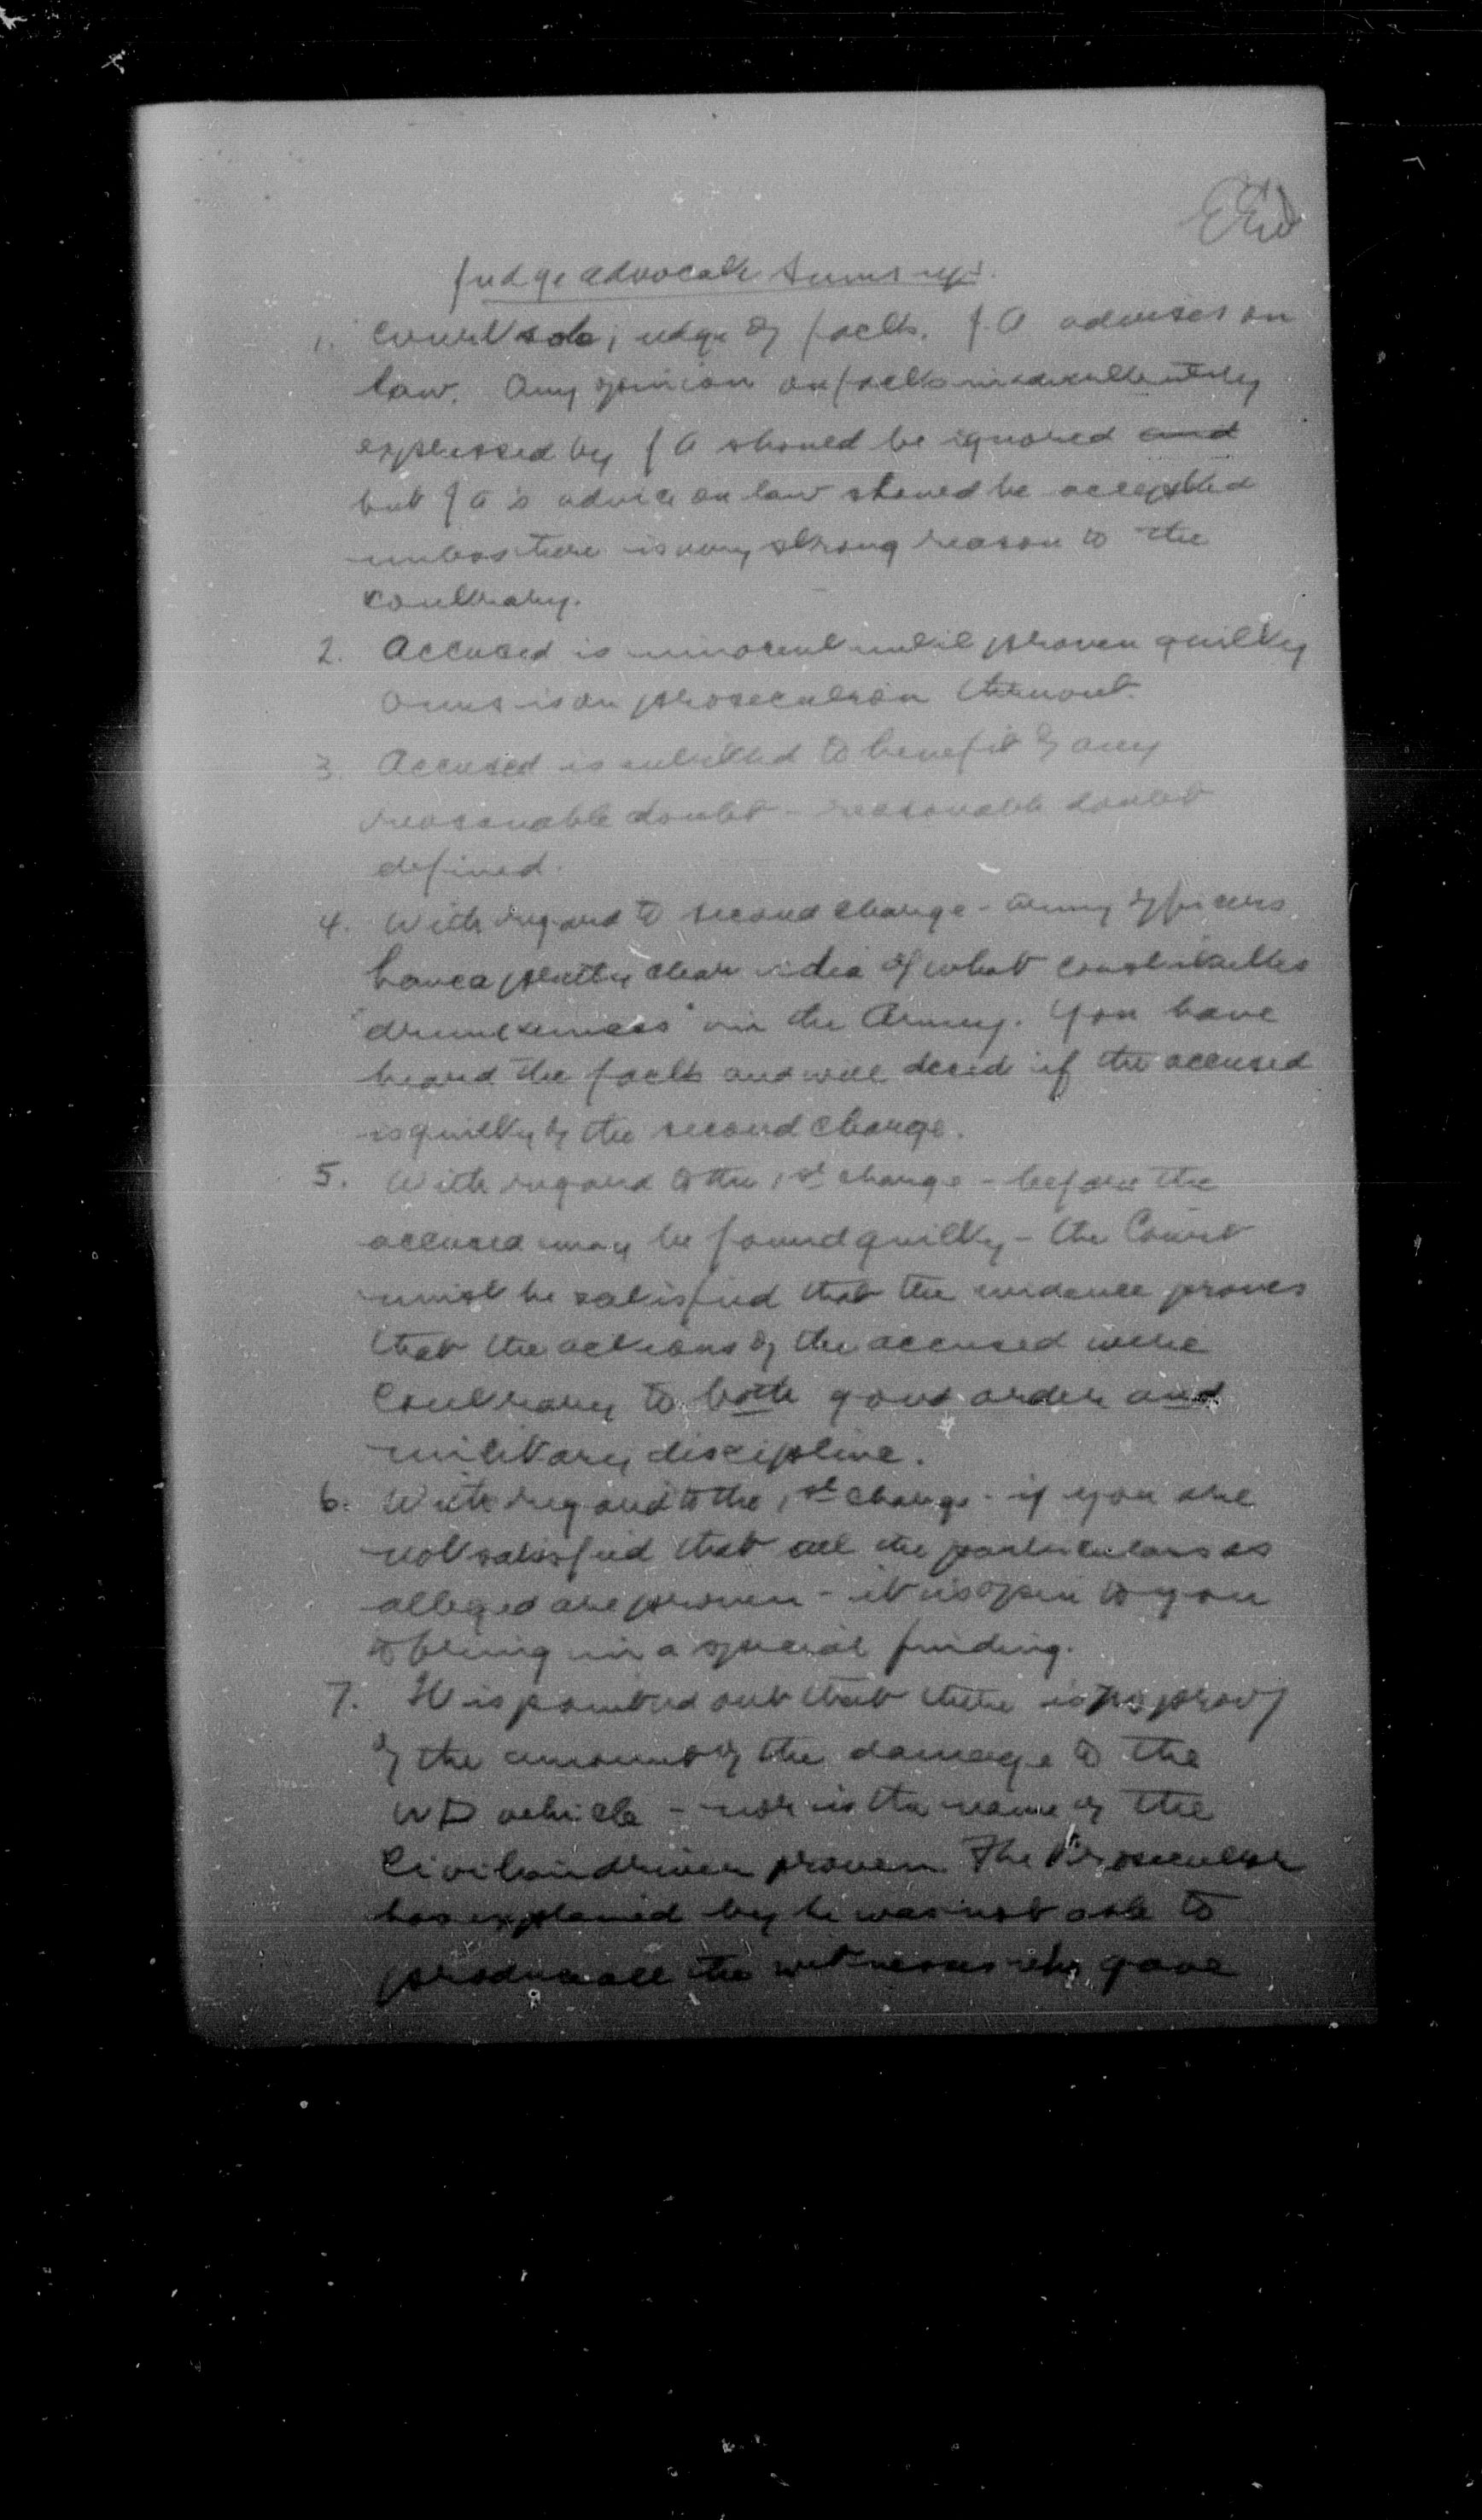 Judge Advocate Sums up.
1. Court sole judge of facts. J.A advises on
law. Any opinion on facts inadvertently
expressed by J A should be ignored and
but J A's advice on law should be accepted
unless there is very strong reason to the
contrary.
2. Accused is innocent until proven guilty
onus is on prosecution throout.
3. Accused is entitled to benefit of any
reasonable doubt - reasonable doubt
defined.
4. With regard to second charge - army officers
have a pretty clear idea of what constitutes
"drunkenness" in the Army. You have
heard the facts and will decide if the accused
is guilty of the second charge.
5. With regard to the 1st charge - before the
accused may be found guilty - the Court
must be satisfied that the evidence proves
that the actions of the accused were
contrary to both good order and
military discipline.
6. With regard to the 1st charge - if you are
not satisfied that all the particulars as
alleged are proven - it is open to you
to bring in a special finding.
7. It is pointed out that there is no proof
of the amount of the damage to the
WD vehicle - nor is the name of the
Civilian driver proven. The Prosecutor
has explained by he was not able to
produce all the witnesses who gave